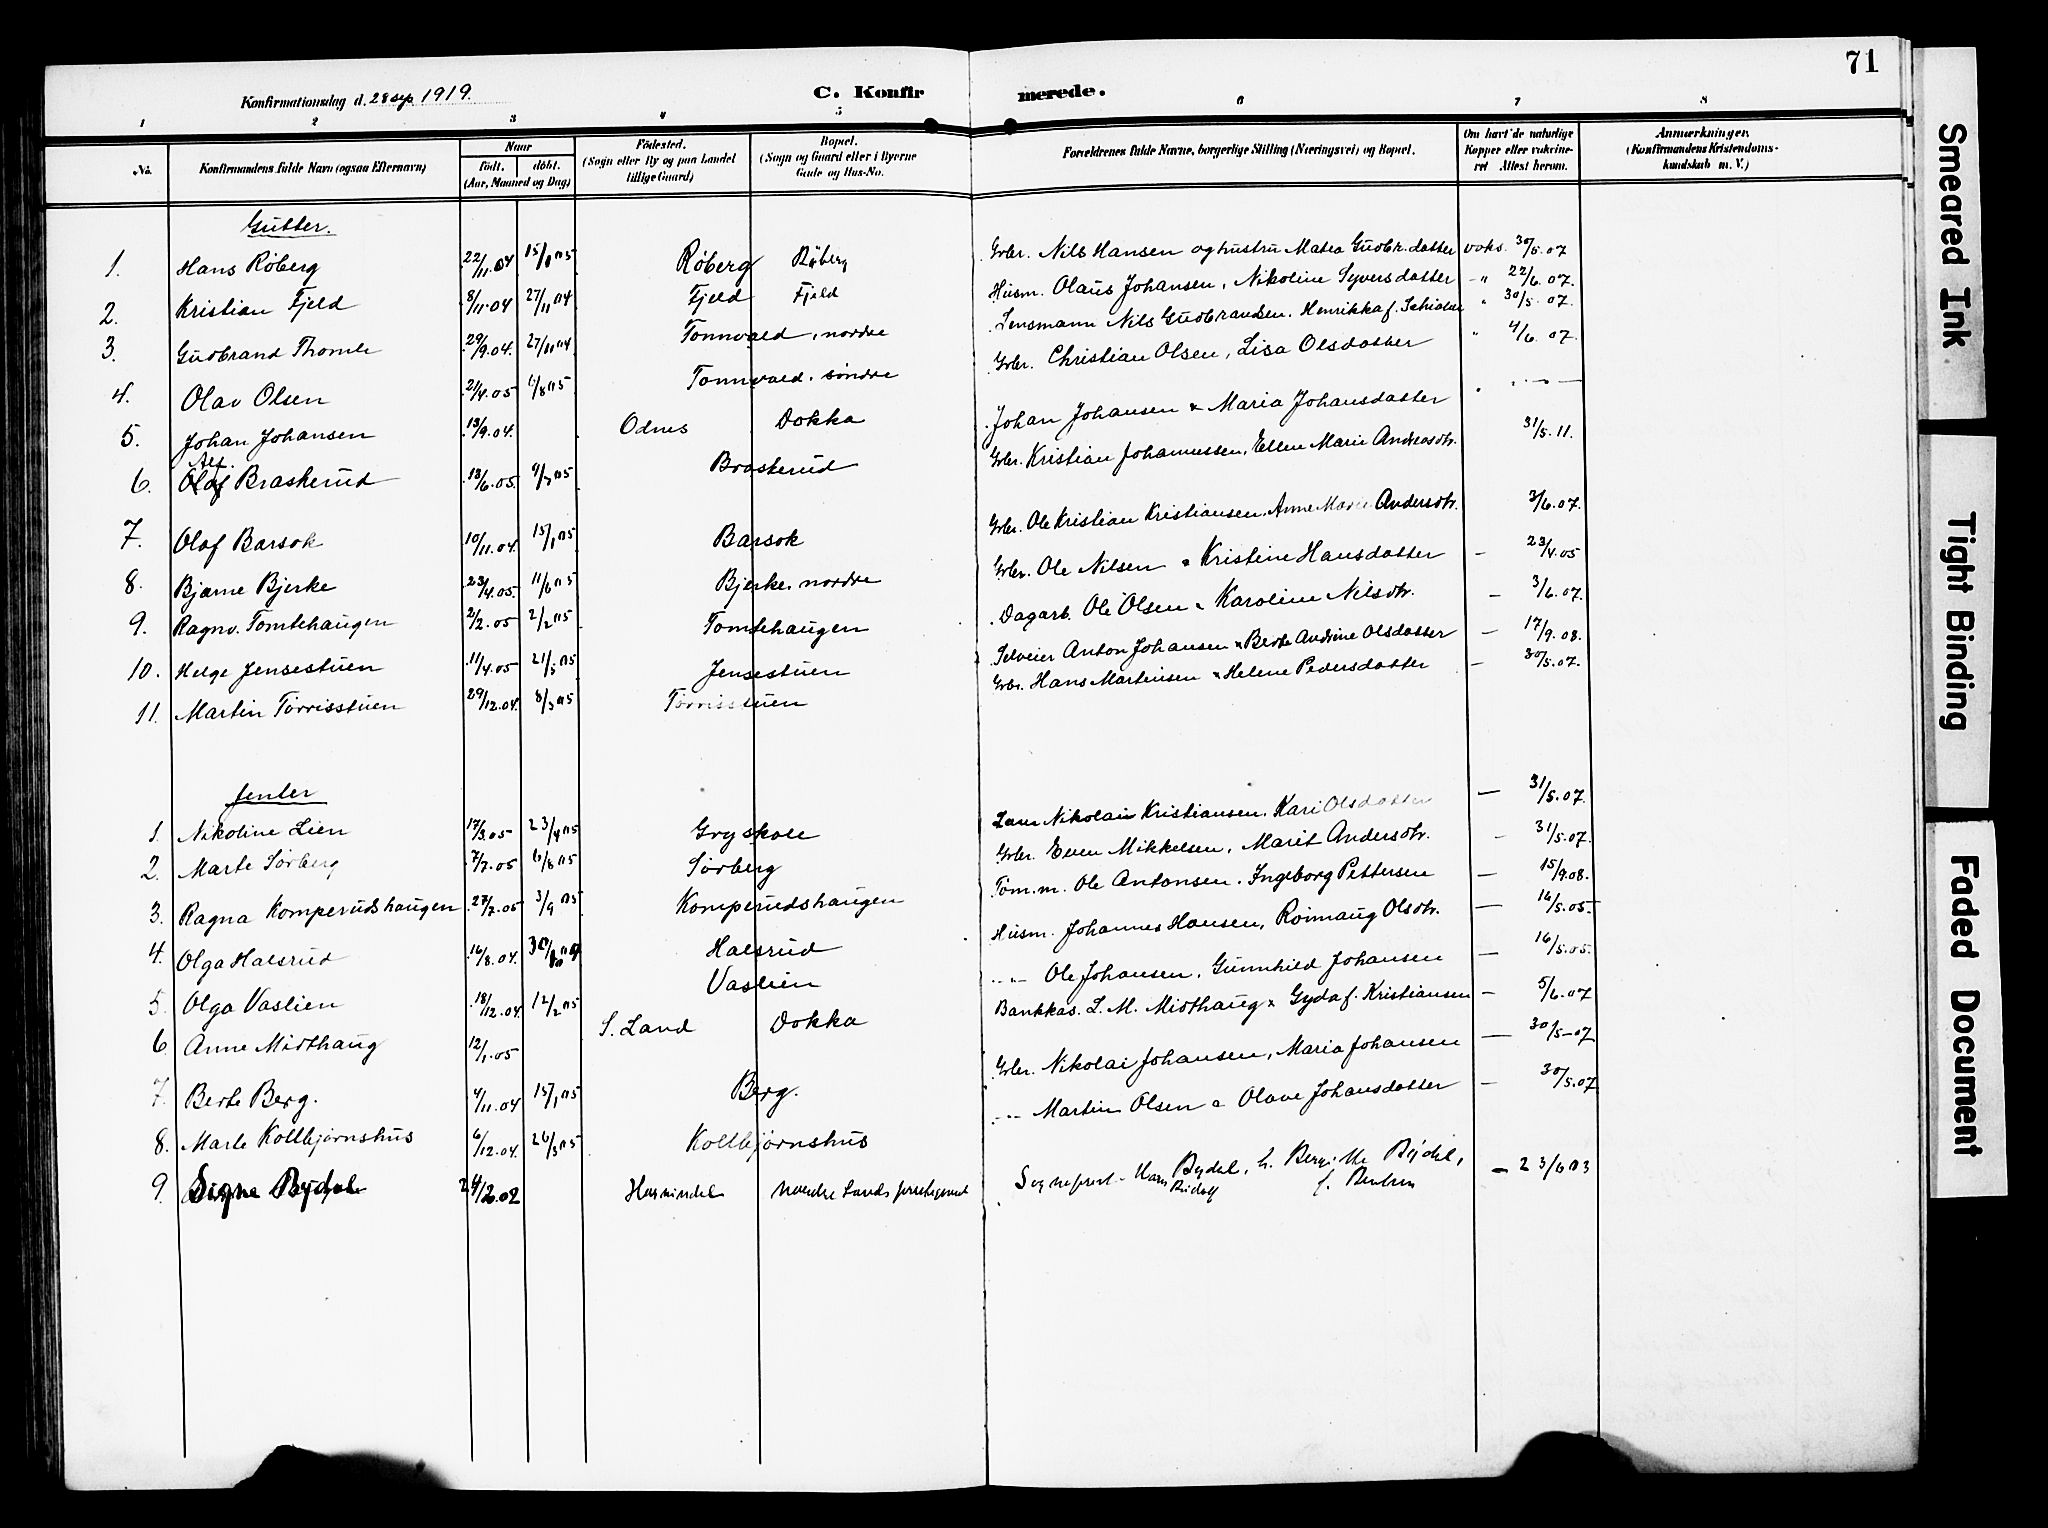 71
Konfirmationsdag d. 28 sep. 1919.
C. Konfir merede.
1 2 3 4 5 6 7 8
No.
Konfirmandens fulde Navn (ogsaa Efternavn)
Naar
født. døbt.
(Aar, Maaned og Dag)
Fødested.
(Sogn eller By og paa Landet
tillige Gaard)
Bopæl.
(Sogn og Gaard eller i Byerne
Gade og Hus-No.
Forældrenes fulde Navne, borgerlige Stilling (Næringsvei) og Bopæl.
Om havt de naturlige
Kopper eller vakcine-
ret Attest herom.
Anmærkninger.
(Konfirmandens Kristendoms-
kundskab m. V.)
Gutter.
1. Hans Røberg 22/11.04 15/1 05 Røberg Røberg Grbr. Nils Hansen og hustru Matea Gudbr.datter voks. 30/5.07
2. Kristian Fjeld 8/11.04 27/11 04 Fjeld Fjeld Husm. Olaus Johansen, Nikoline Syversdatter - " 22/6.07.
3. Gudbrand Thomle 29/9.04. 27/11 04 Tonnvald, nordre Lensmann Nils Gudbrandsen. Henrikka f. " 30/5.07.
4. Olav Olsen 21/4.05 6/8 05 Tonnvald. søndre Grbr. Christian Olsen, Lisa Olsdatter " 4/6.07.
5. Johan Johansen 13/9.04. Odnes Dokka Johan Johansen & Maria Johansdatter
6. Alf. Olaf Braskerud 18/6.05. 9/3 05 Braskerud Grbr. Kristian Johannessen, Ellen Marie Andreasdtr. 31/5.11.
7. Olaf Barsok 10/11.04. 15/1 05 Barsok Grbr. Ole Kristian Kristiansen, Anne Marie Andersdtr. 3/6.07.
8. Bjarne Bjerke 23/4.05. 11/6 05 Bjerke. nordre Grbr. Ole Nilsen & Kristine Hansdatter - 23/4.05
9. Ragnv. Tomtehaugen 2/2.05 2/2 05 Tomtehaugen Dagarb. Ole Olsen & Karoline Nilsdtr. - 3/6.07.
10. Helge Jensestuen 11/4.05 21/5 05 Jensestuen Selveier Anton Johansen & Berte Andrine Olsdatter - 17/9.08.
11. Martin Torrisstuen 29/12.04. 8/3 05 Torrisstuen Grbr. Hans Martinsen & Helene Pedersdatter - 30/5.07.
Jenter
1. Nikoline Lien 17/3.05 23/4 05 Gryskole Nikolai Kristiansen, Kari Olsdatter - 31/5.07.
2. Marte Sørberg 7/7.05 6/8 05 Sørberg Grbr. Even Mikkelsen, Marit Andersdtr. - 31/5.07.
3. Ragna Komperudshaugen 27/7.05 3/9 05 Komperudshaugen Tøm.m. Ole Antonsen. Ingeborg Pettersen - 15/9.08.
4. Olga Halsrud 16/8.04. Halsrud Husm. Johannes Hansen, Roinnaug Olsdtr. - 16/5.05
5. Olga Vaslien 18/12.04. 12/2 05 Vaslien -"- Ole Johansen, Gunnhild Johansen - 16/5.05.
6. Anne Midthaug 12/1.05 S. Land Dokka Bankkas. L. M. Midthaug & Gyda f. Kristiansen - 5/6.07
7. Berte Berg. 4/11.04 15/1 05 Berg. Grbr. Nikolai Johansen, Maria Johansen - 30/5-07
8. Marte Kolbjørnshus 6/12.04. 26/3 05 Kolbjørnshus -"- Martin Olsen & Olave Johansdatter - 30/5.07
9. Signe Bydal 24/2.02 Nordre Lands Sogneprest Hans Rudolf Bydal, h. Bergitte Bydal, f. - 23/6 03
Smeared Ink
Tight Binding
Faded Document